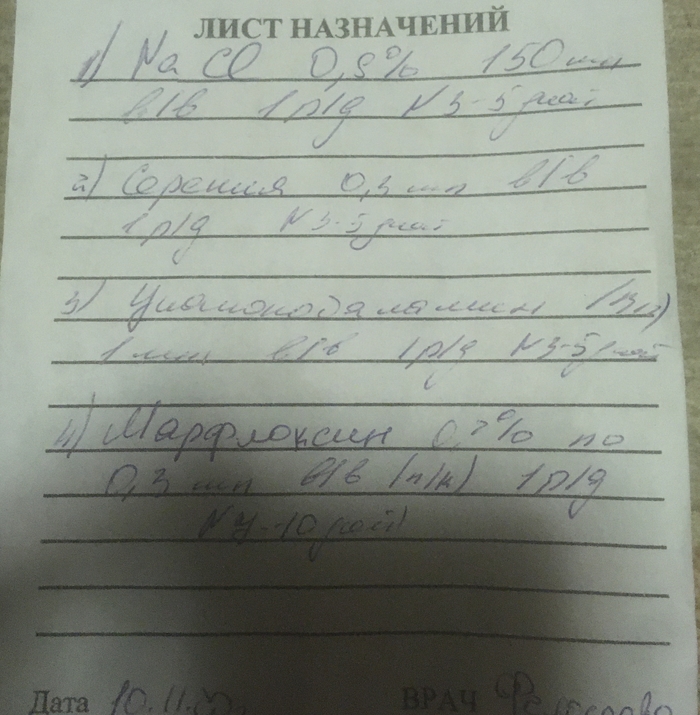 ЛИСТ НАЗНАЧЕНИЙ
1) Na Cl 0,9% 150 мл
в/в 1 р/д N 3-5 дней
2) Серения 0,3 мл в/в
1 р/д N 3-5 дней
3) Цианокобаламин
1 мл в/в 1 р/д N 3-5 дней
4) Марфлоксин по
0,3 мл в/в (п/к) 1 р/д
N 7-10 дней
Дата 10.11. ВРАЧ